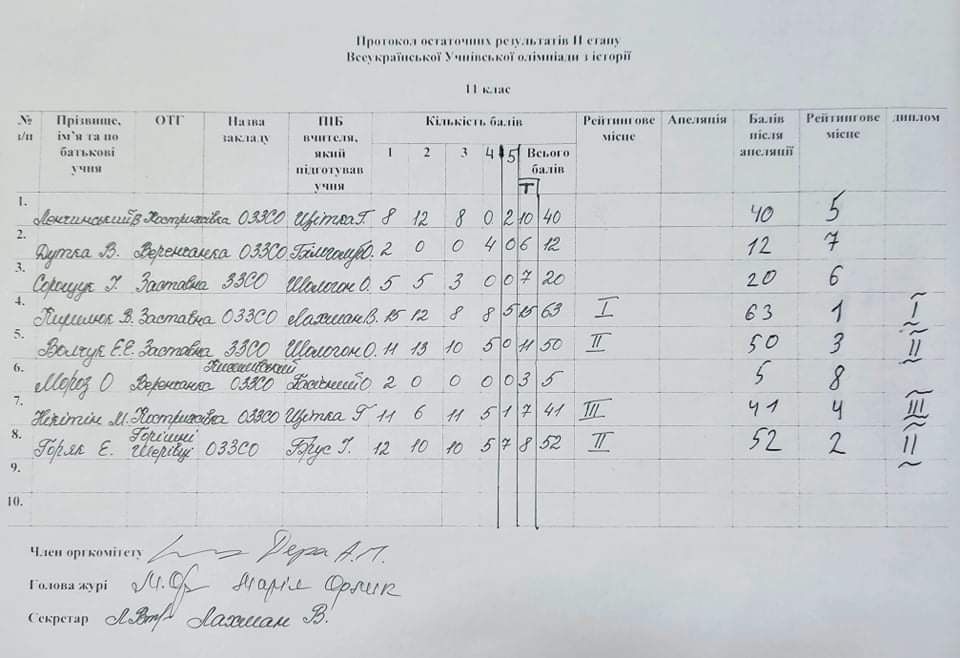 Протокол остаточних результатів ІІ етапу
Всеукраїнської Учнівської олімпіади з історії
11 клас
№ з/п Прізвище, ім'я та по батькові учня ОТГ Назва закладу ПІБ вчителя, який підготував учня Кількість балів 1 2 3 4 5 Т Всього балів Рейтингове місце Апеляція Балів після апеляції Рейтингове місце диплом
1. Ленчинський В Кострижівка ОЗЗСО Цвітка Г. 8 12 8 0 2 10 40 40 5
2. Дутка В. Веренчанка ОЗЗСО О. 2 0 0 4 0 6 12 12 7
3. І. Заставна ЗЗСО Шологон О. 5 5 3 0 0 7 20 20 6
4. Кирилюк В. Заставна ОЗЗСО Лахман В. 15 12 8 8 5 15 63 І 63 1 І
5. Волчук Е.Є. Заставна ЗЗСО Шологон О. 11 13 10 5 0 11 50 ІІ 50 3 ІІ
6. Мороз О Веренчанка ОЗЗСО О 2 0 0 0 0 3 5 5 8
7. Нікітін М. Кострижівка ОЗЗСО Цвітка Г 11 6 11 5 1 7 41 ІІІ 41 4 ІІІ
8. Горяк Е. Горішні Шерівці ОЗЗСО Брус І. 12 10 10 5 7 8 52 ІІ 52 2 ІІ
9.
10.
Член оргкомітету Дера А.П.
Голова журі М.Ор Марія Орлик
Секретар Лахман В.